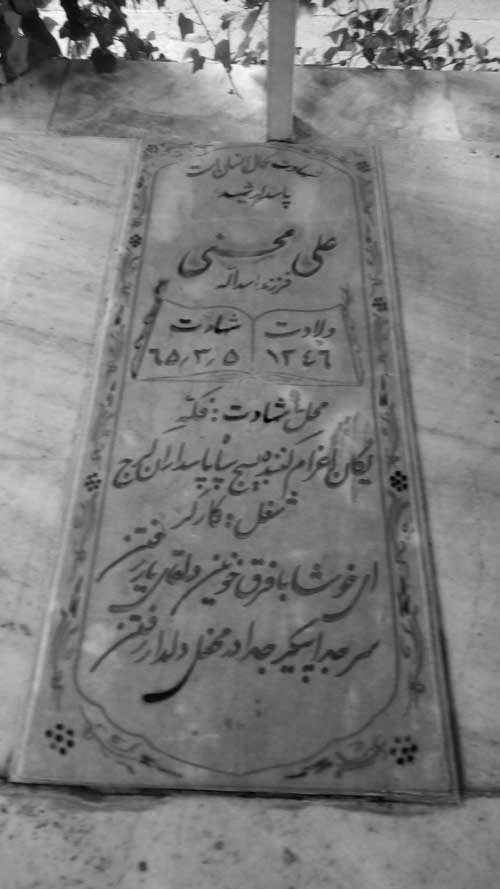 شهادت کمال انسان است
پاسدار شهید
علی محسنی
فرزند: اسداله
ولادت شهادت
۱۳۴۶ ۶۵/۳/۵
محل شهادت: فکه
یگان اعزام کننده بسیج سپاه پاسداران کرج
شغل: کارگر
ای خوشا با فرق خونین در لقای یار رفتن
سر جدا پیکر جدا در محفل دلدار رفتن